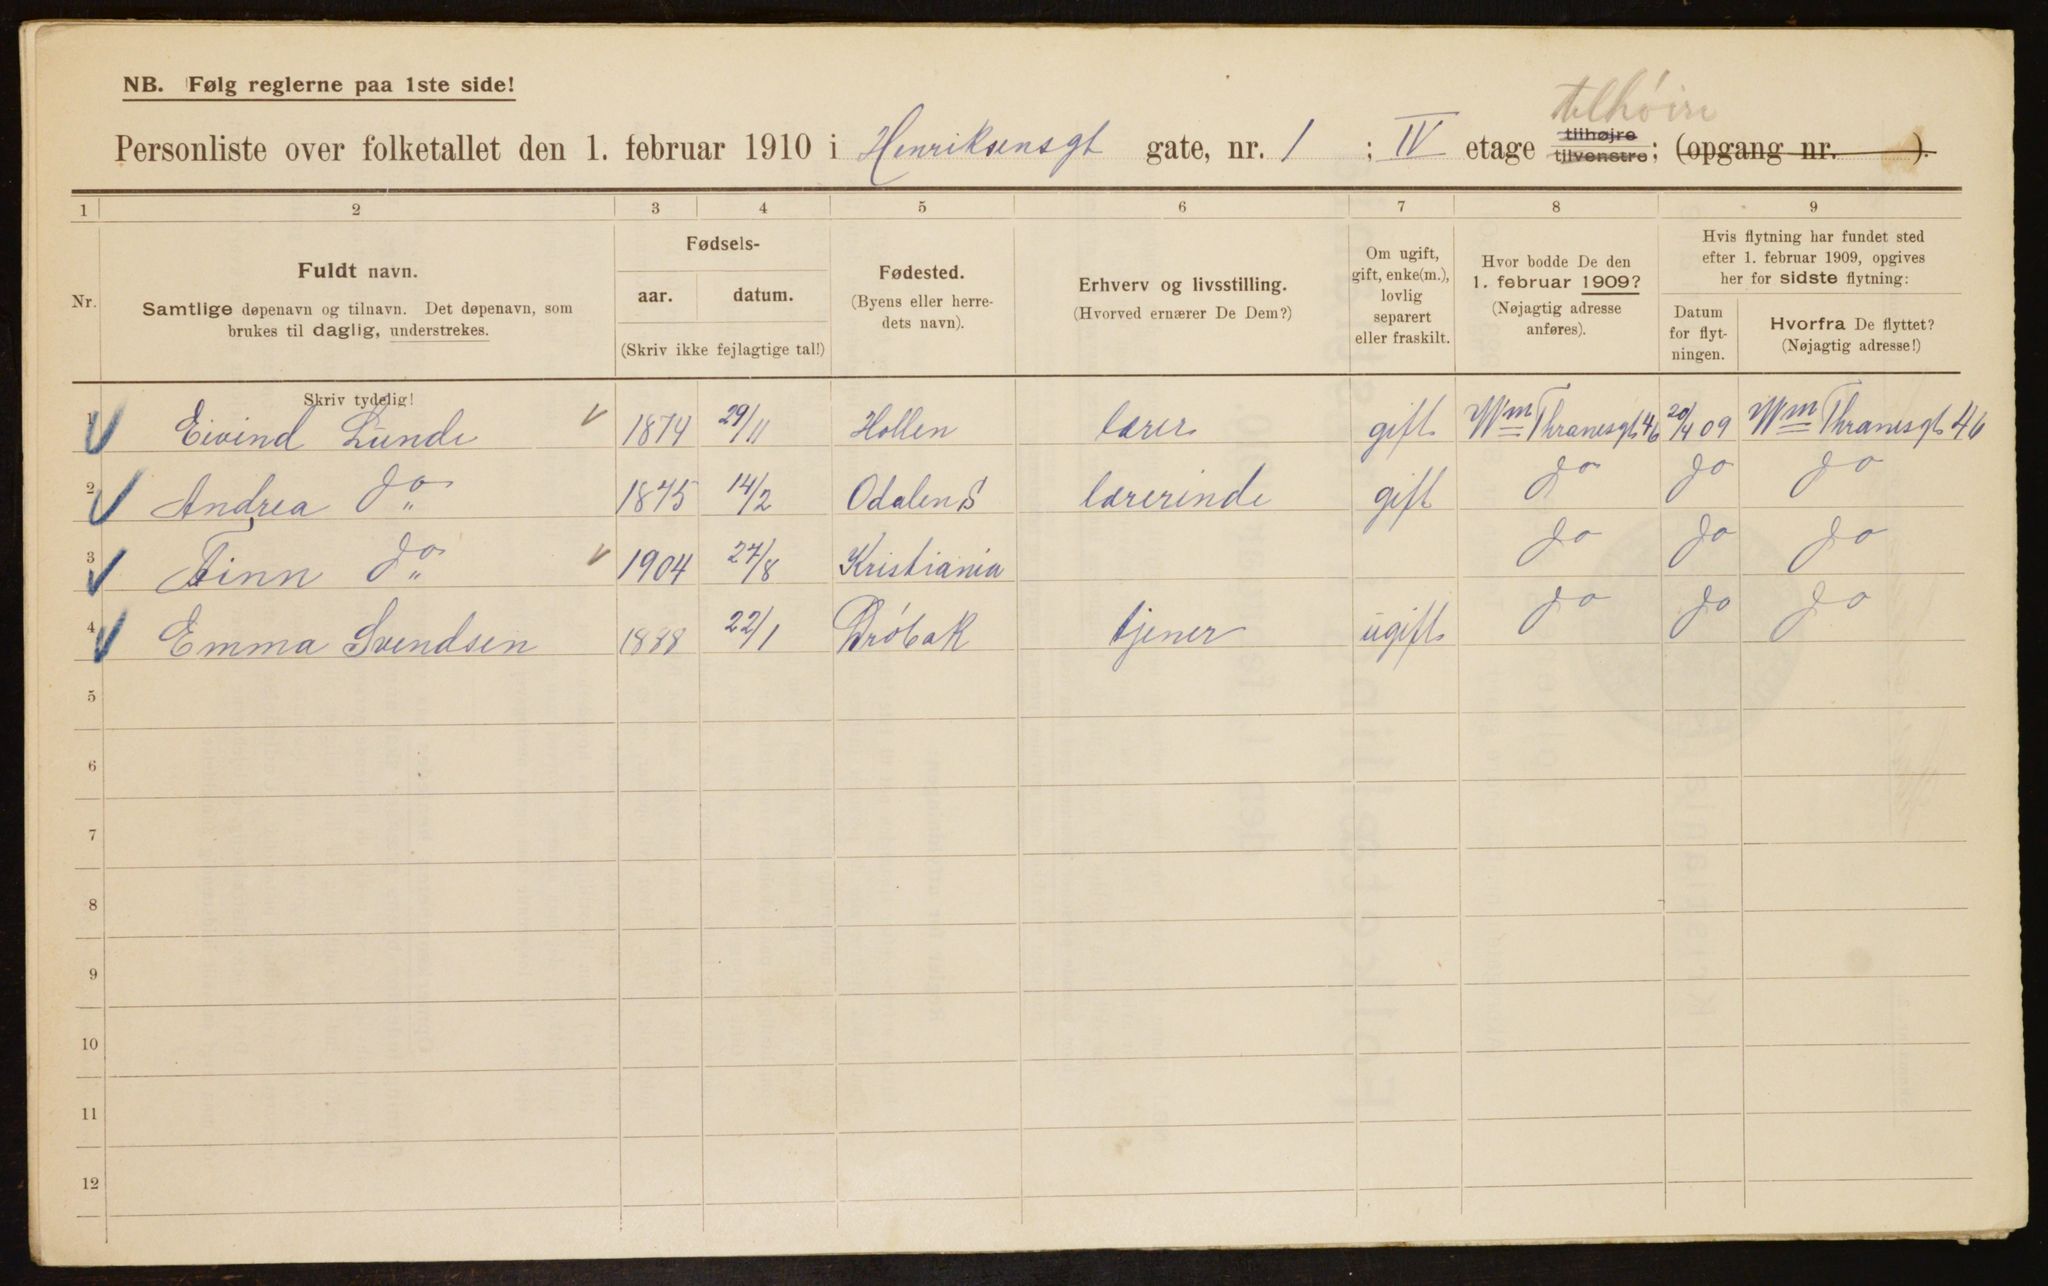 NB. Følg reglerne paa 1ste side!
telhöire
Personliste over folketallet den 1. februar 1910 i Henriksensgt gate, nr. 1 ; IV etage tilhøjre tilvenstre; (opgang nr. ).
1 2 3 4 5 6 7 8 9
Nr.
Fuldt navn.
Samtlige døpenavn og tilnavn. Det døpenavn, som
brukes til daglig, understrekes.
Skriv tydelig!
Fødsels-
aar. datum.
(Skriv ikke fejlagtige tal!)
Fødested.
(Byens eller herre-
dets navn).
Erhverv og livsstilling.
(Hvorved ernærer De Dem?)
Om ugift,
gift, enke(m.),
lovlig
separert
eller fraskilt.
Hvor bodde De den
1. februar 1909?
(Nøjagtig adresse
anføres).
Hvis flytning har fundet sted
efter 1. februar 1909, opgives
her for sidste flytning:
Datum
for flyt-
ningen.
Hvorfra De flyttet?
(Nøjagtig adresse!)
1 Eivind Lunde 1874 29/11 Hollen lærer gift Wm Thranesgt 46 20/4 09 Wm Thranesgt 46
2 Andrea do 1875 14/2 Odalen S lærerinde gift do do do
3 Finn do 1904 27/8 Kristiania do do do
4 Emma Svendsen 1888 22/1 Dröbak tjener ugift do do do
5
6
7
8
9
10
11
12